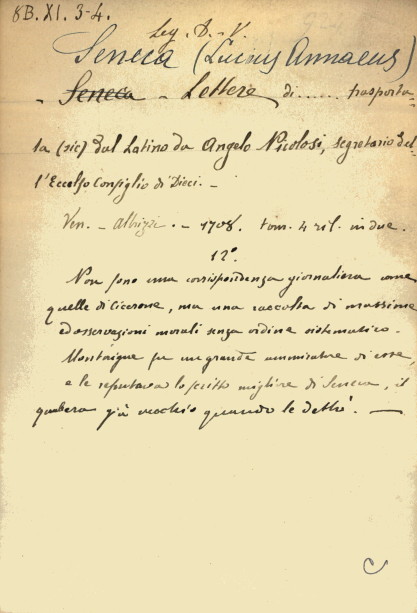 8B. XI. 3-4.
Leg. D. V.
Seneca (Lucius Annaeus)
- Seneca - Lettere di ..... trasporta
ta (sic) dal Latino da Angelo Nicolosi, segretario del
l'Eccelso Consiglio di Dieci. -
Ven. - Albrizzi. - 1708. tom. 4 ril. in due.
12°.
Non sono una corrispondenza giornaliera come
quelle di Cicerone, ma una raccolta di massime
ed osservazioni morali senza ordine sistematico.
Montaigne fu un grande ammiratore di esse,
e le reputava lo scritto migliore di Seneca, il
già vecchio quando le dettò. -
C